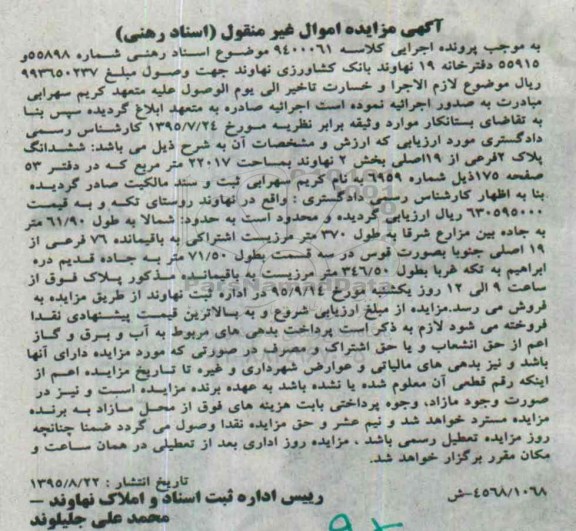 آگهی مزایده اموال غیر منقول (اسناد رهنی)
به موجب پرونده اجرایی کلاسه ۹۴۰۰۰۶۱ موضوع اسناد رهنی شماره ۵۵۸۹۸و
۵۵۹۱۵ دفترخانه ۱۹ نهاوند بانک کشاورزی نهاوند جهت وصول مبلغ ۹۹۳۶۵۰۲۳۷
ریال موضوع لازم الاجرا و خسارت تاخیر الی یوم الوصول علیه متعهد کریم سهرابی
مبادرت به صدور اجرائیه نموده است اجرائیه صادره به متعهد ابلاغ گردیده سپس بنا
به تقاضای بستانکار موارد وثیقه برابر نظریه مورخ ۱۳۹۵/۷/۲۴ کارشناس رسمی
دادگستری مورد ارزیابی که ارزش و مشخصات آن به شرح ذیل می باشد: ششدانگ
پلاک ۲فرعی از ۱۹اصلی بخش ۲ نهاوند بمساحت ۲۲۰۱۷ متر مربع که در دفتر ۵۳
صفحه ۱۷۵ذیل شماره ۶۹۵۹ بنام کریم سهرابی ثبت و سند مالکیت صادر گردیده
بنا به اظهار کارشناس رسمی دادگستری : واقع در نهاوند روستای تکه و به قیمت
۶۳۰۵۹۵۰۰۰ ریال ارزیابی گردیده و محدود است به حدود: شمالا به طول ۶۱/۹۰ متر
به جاده بین مزارع شرقا به طول ۳۷۰ متر مرزیست اشتراکی به باقیمانده ۷۶ فرعی از
۱۹ اصلی جنوبا بصورت قوس در سه قسمت بطول ۷۱/۵۰ متر به جاده قدیم دره
ابراهیم به تکه غربا بطول ۳۴۶/۵۰ متر مرزیست به باقیمانده مذکور پلاک فوق از
ساعت ۹ الی ۱۲ روز یکشنبه مورخ ۹۵/۹/۱۴ در اداره ثبت نهاوند از طریق مزایده به
فروش می رسد.مزایده از مبلغ ارزیابی شروع و به بالاترین قیمت پیشنهادی نقدا
فروخته می شود لازم به ذکر است پرداخت بدهی های مربوط به آب و برق و گاز
اعم از حق انشعاب و یا حق اشتراک و مصرف در صورتی که مورد مزایده دارای آنها
باشد و نیز بدهی های مالیاتی و عوارض شهرداری و غیره تا تاریخ مزایده اعم از
اینکه رقم قطعی آن معلوم شده یا نشده باشد به عهده برنده مزایده است و نیز در
صورت وجود مازاد، وجوه پرداختی بابت هزینه های فوق از محل مازاد به برنده
مزایده مسترد خواهد شد و نیم عشر و حق مزایده نقدا وصول می گردد ضمنا چنانچه
روز مزایده تعطیل رسمی باشد ، مزایده روز اداری بعد از تعطیلی در همان ساعت و
مکان مقرر برگزار خواهد شد.
تاریخ انتشار : ۱۳۹۵/۸/۲۲
۴۵۶۸/۱۰۶۸-ش
رییس اداره ثبت اسناد و املاک نهاوند –
محمد علی جلیلوند